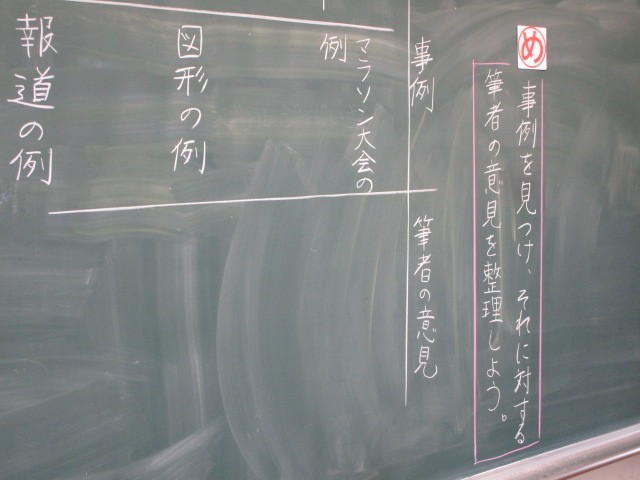 め
事例を見つけ、それに対する
筆者の意見を整理しよう。
事例
筆者の意見
マラソン大会の
例
図形の例
報道の例